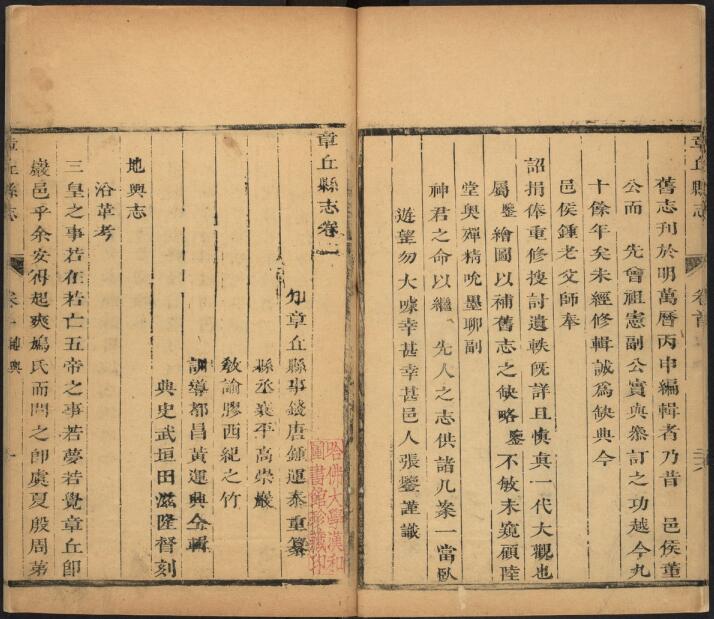 章丘縣志
卷首
舊志刊於明萬曆丙申編輯者乃昔　邑侯董
公而　先曾祖憲副公實與叅訂之功越今九
十餘年矣未經修輯誠爲缺典今
邑侯鍾老父師奉
詔捐俸重修搜討遺軼旣詳且慎真一代大觀也
屬鑒繪圖以補舊志之缺略鑒不敏未窺顧陸
堂奧殫精吮墨聊副
神君之命以繼　先人之志供諸几案一當臥
遊望勿大噱幸甚幸甚邑人張鑒謹識
章丘縣志卷一
知章丘縣事錢唐鍾運泰重纂
縣丞襄平高崇巖
教諭膠西紀之竹
訓導都昌黃運興仝輯
典史武垣田滋隆督刻
地輿志
沿革考
三皇之事若在若亡五帝之事若夢若覺章丘卽
巖邑乎余安得起爽鳩氏而問之卽虞夏殷周第
章丘縣志
卷一
輿
一
哈佛大學漢和
圖書館珍藏印